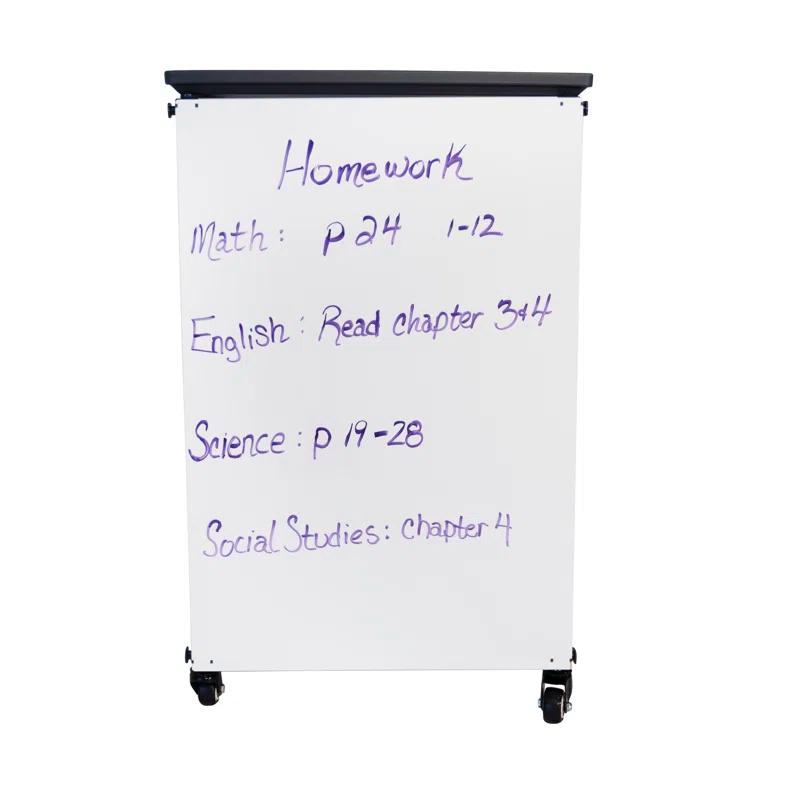 Homework
Math: p 24 1-12
English: Read chapter 3&4
Science: p 19-28
Social Studies: Chapter 4